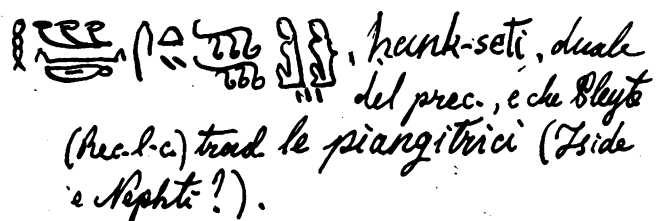 , hank-seti, duale
del prec., e che Pleyte
(Rec. l. c.) trad. le piangitrici (Iside
e Nephti?).